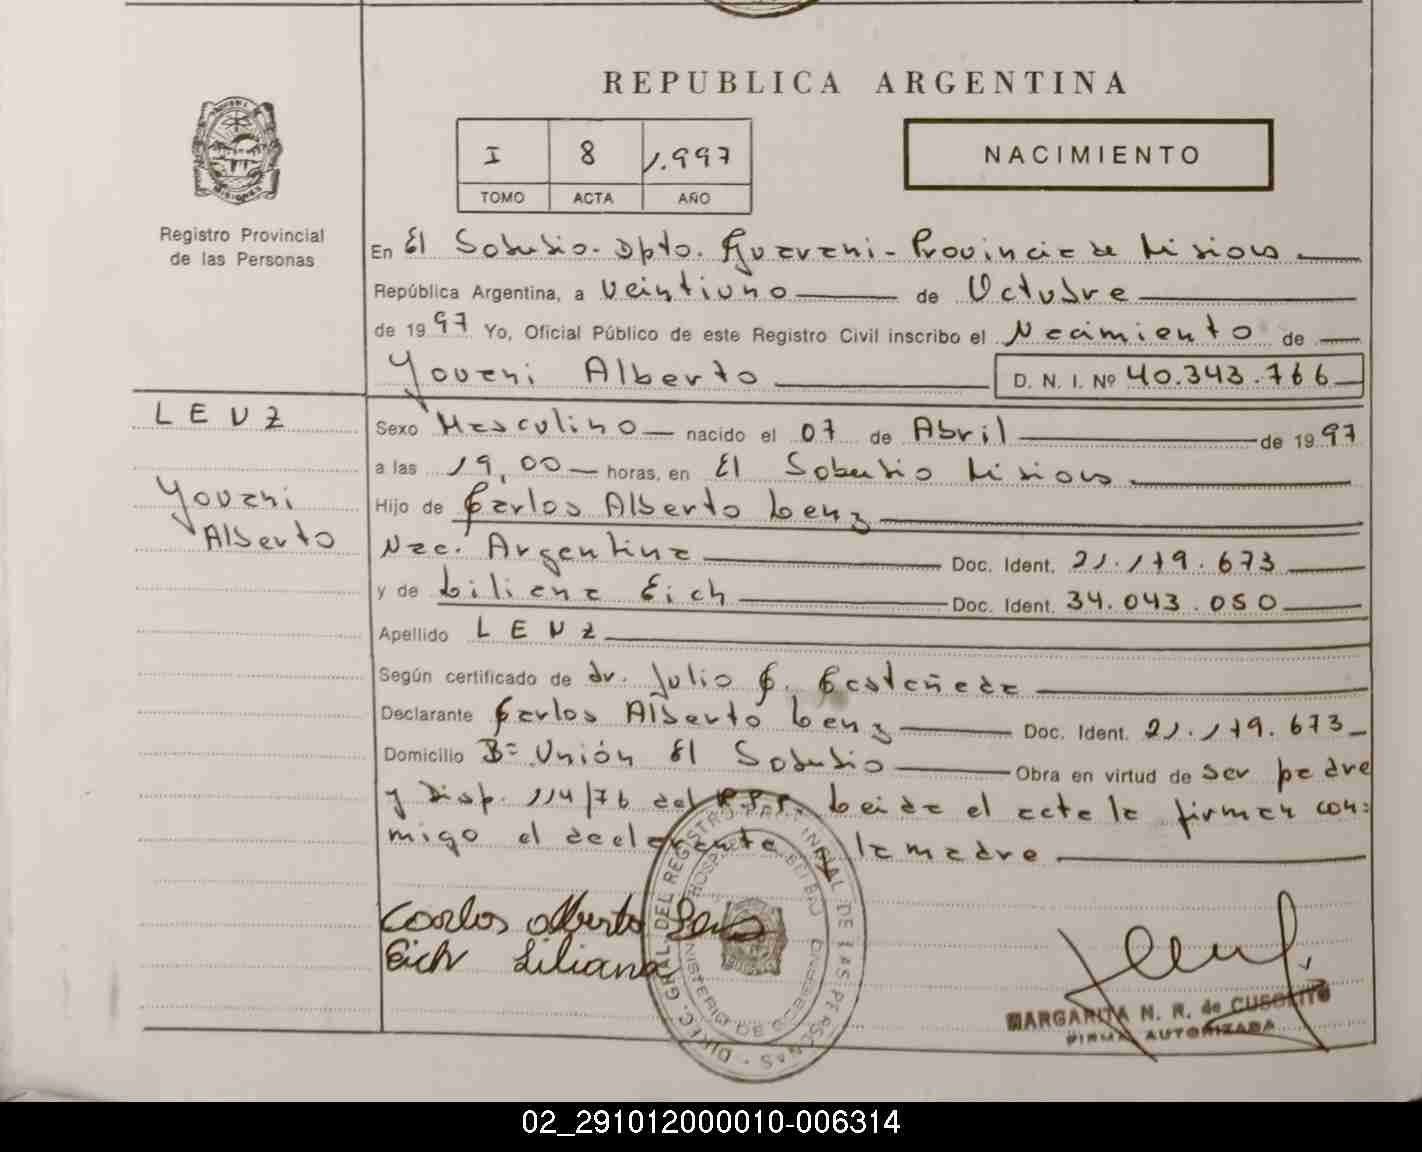 REPUBLICA ARGENTINA
I 8 1.997
TOMO ACTA AÑO
NACIMIENTO
Registro Provincial
de las Personas
En El Soberbio - Dpto. Guarani - Provincia de Misiones
República Argentina, a Veintiuno de Octubre
de 1997 Yo, Oficial Público de este Registro Civil inscribo el Nacimiento de
Yovani Alberto D. N. I. Nº 40.343.766
LENZ
Yovani
Alberto
Sexo Masculino nacido el 07 de Abril de 1997
a las 19,00 horas, en El Soberbio Misiones
Hijo de Carlos Alberto Lenz
Nac. Argentina Doc. Ident. 21.179.673
y de Liliana Eich Doc. Ident. 34.043.050
Apellido LENZ
Según certificado de dr. Julio C. Castañeda
Declarante Carlos Alberto Lenz Doc. Ident. 21.179.673
Domicilio Bº Unión El Soberbio Obra en virtud de ser padre
y Disp. 114/76 del R.P.P. Leida el acta la firman con=
migo el declarante y la madre
Carlos Alberto Lenz
Eich Liliana
DIREC. GRAL. DEL REGISTRO PROVINCIAL DE LAS PERSONAS
MARGARITA N. R. de
FIRMA AUTORIZADA
02_291012000010-006314